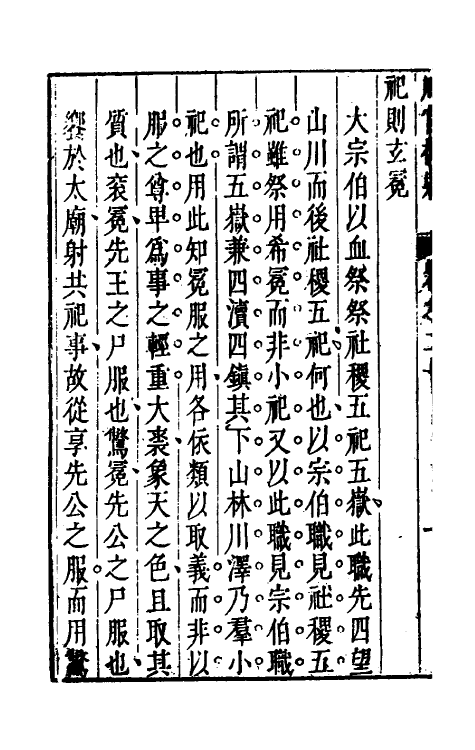 祀則玄冕
大宗伯以血祭祭社稷五祀五嶽此職先四望
山川而後社稷五祀何也以宗伯職見社稷五
祀雖祭用希冕而非小祀又以此職見宗伯職
所謂五嶽兼四瀆四鎮其下山林川澤乃羣小
祀也用此知冕服之用各依類以取義而非以
服之尊卑為事之輕重大裘象天之色且取其
質也袞冕先王之尸服也鷩冕先公之尸服也
饗於太廟射共祀事故從享先公之服而用鷩